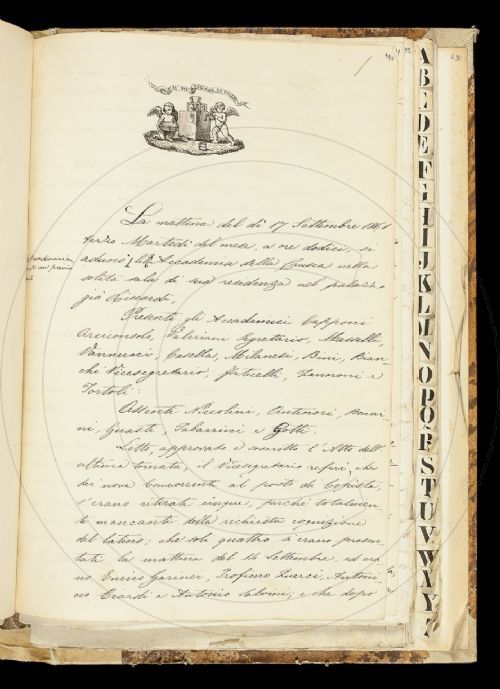 La mattina del dì 17 Settembre 1861
terzo Martedì del mese, a ore dodici, si
adunò la Accademia della Crusca nella
solita sala di sua residenza nel palazzo
già Riccardi.
Presenti gli Accademici Capponi
Arciconsolo, Tabriani Segretario, Masselli,
Vannucci, Casella, Milanesi, Bini, Bian-
chi Vicesegretario, Fraticelli, Zannoni e
Tortoli.
Assenti Niccolini, Antinori, Bonai-
ni, Guasti, Tabarrini e Gotti.
Letto, approvato e corretto l'Atto dell'
ultima tornata, il Vicesegretario riferì, che
dei nove Concorrenti al posto di Copista,
s'erano ritirati cinque, perchè totalmen-
te mancanti della richiesta cognizione
del latino; che soli quattro s'erano presen-
tati la mattina del 14 Settembre, ed era-
no Enrico Garnier, Trofimo Querci, Antoni-
no Ciardi e Antonio Salvini; e che dopo
A
B
C
D
E
F
G
H
I
J
K
L
M
N
O
P
Q
R
S
T
U
V
W
X
Y
Z